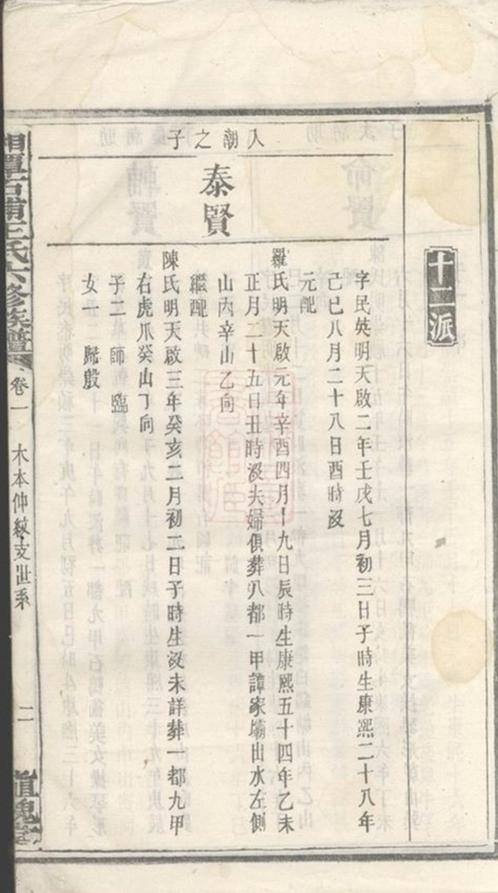 十二派
人朝之子
泰賢
字民英明天啟二年壬戌七月初三日子時生康熙二十八年
己巳八月二十八日酉時沒
元配
羅氏明天啟元年辛酉四月十九日辰時生康熙五十四年乙未
正月二十五日丑時沒夫婦俱葬八都一甲譚家壩出水左側
山內辛山乙向
繼配
陳氏明天啟三年癸亥二月初二日子時生沒未詳葬一都九甲
右虎爪癸山丁向
子二 師 臨
女一 歸殷
氏六修族譜
卷一
木本仲紋支世系
二